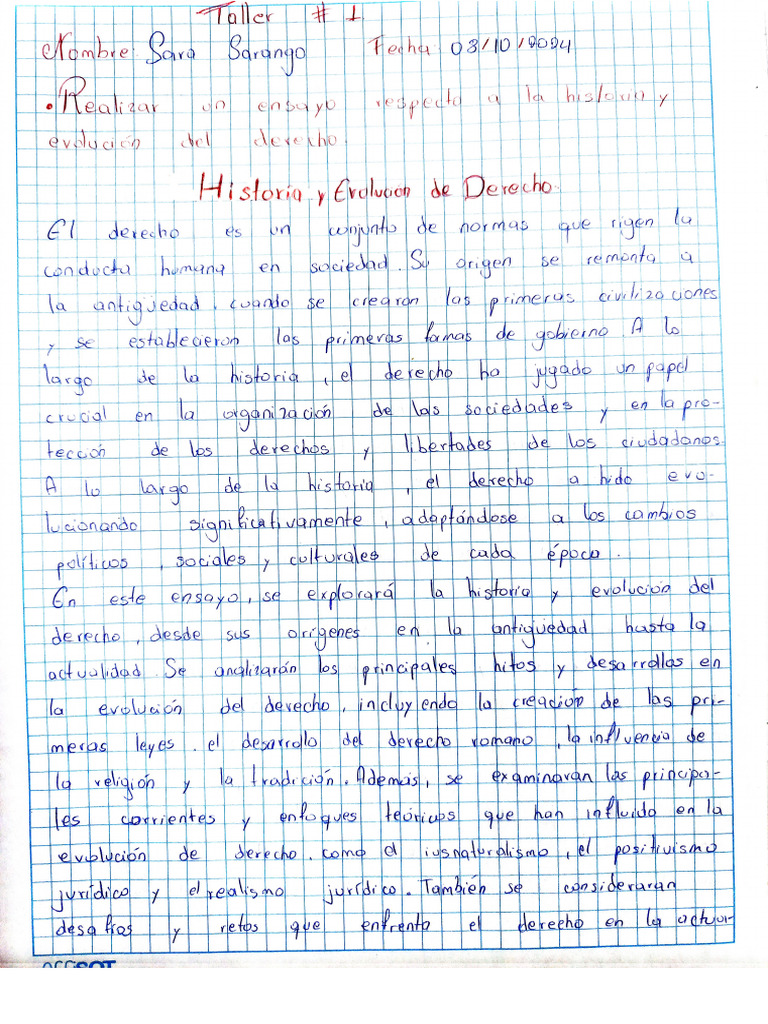 Taller # 1
Nombre: Sara Sarango Fecha 03/10/2024
• Realizar un ensayo respecto a la historia y
evolución del derecho.
Historia y Evolución de Derecho.
El derecho es un conjunto de normas que rigen la
conducta humana en sociedad. Su origen se remonta a
la antigüedad, cuando se crearon las primeras civilizaciones
y se establecieron las primeras famas de gobierno. A lo
largo de la historia, el derecho ha jugado un papel
crucial en la organización de las sociedades y en la pro-
tección de los derechos y libertades de los ciudadanos.
A lo largo de la historia, el derecho a hido evo-
lucionando significativamente, adaptándose a los cambios
políticos, sociales y culturales de cada época.
En este ensayo, se explorará la historia y evolución del
derecho, desde sus orígenes en la antigüedad hasta la
actualidad. Se analizarán los principales hitos y desarrollos en
la evolución del derecho, incluyendo la creación de las pri-
meras leyes, el desarrollo del derecho romano, la influencia de
la religión y la tradición. Además, se examinaran las principa-
les corrientes y enfoques teóricos que han influido en la
evolución de derecho, como el iusnaturalismo, el positivismo
jurídico y el realismo jurídico. También se consideraran
desafíos y retos que enfrenta el derecho en la actua-